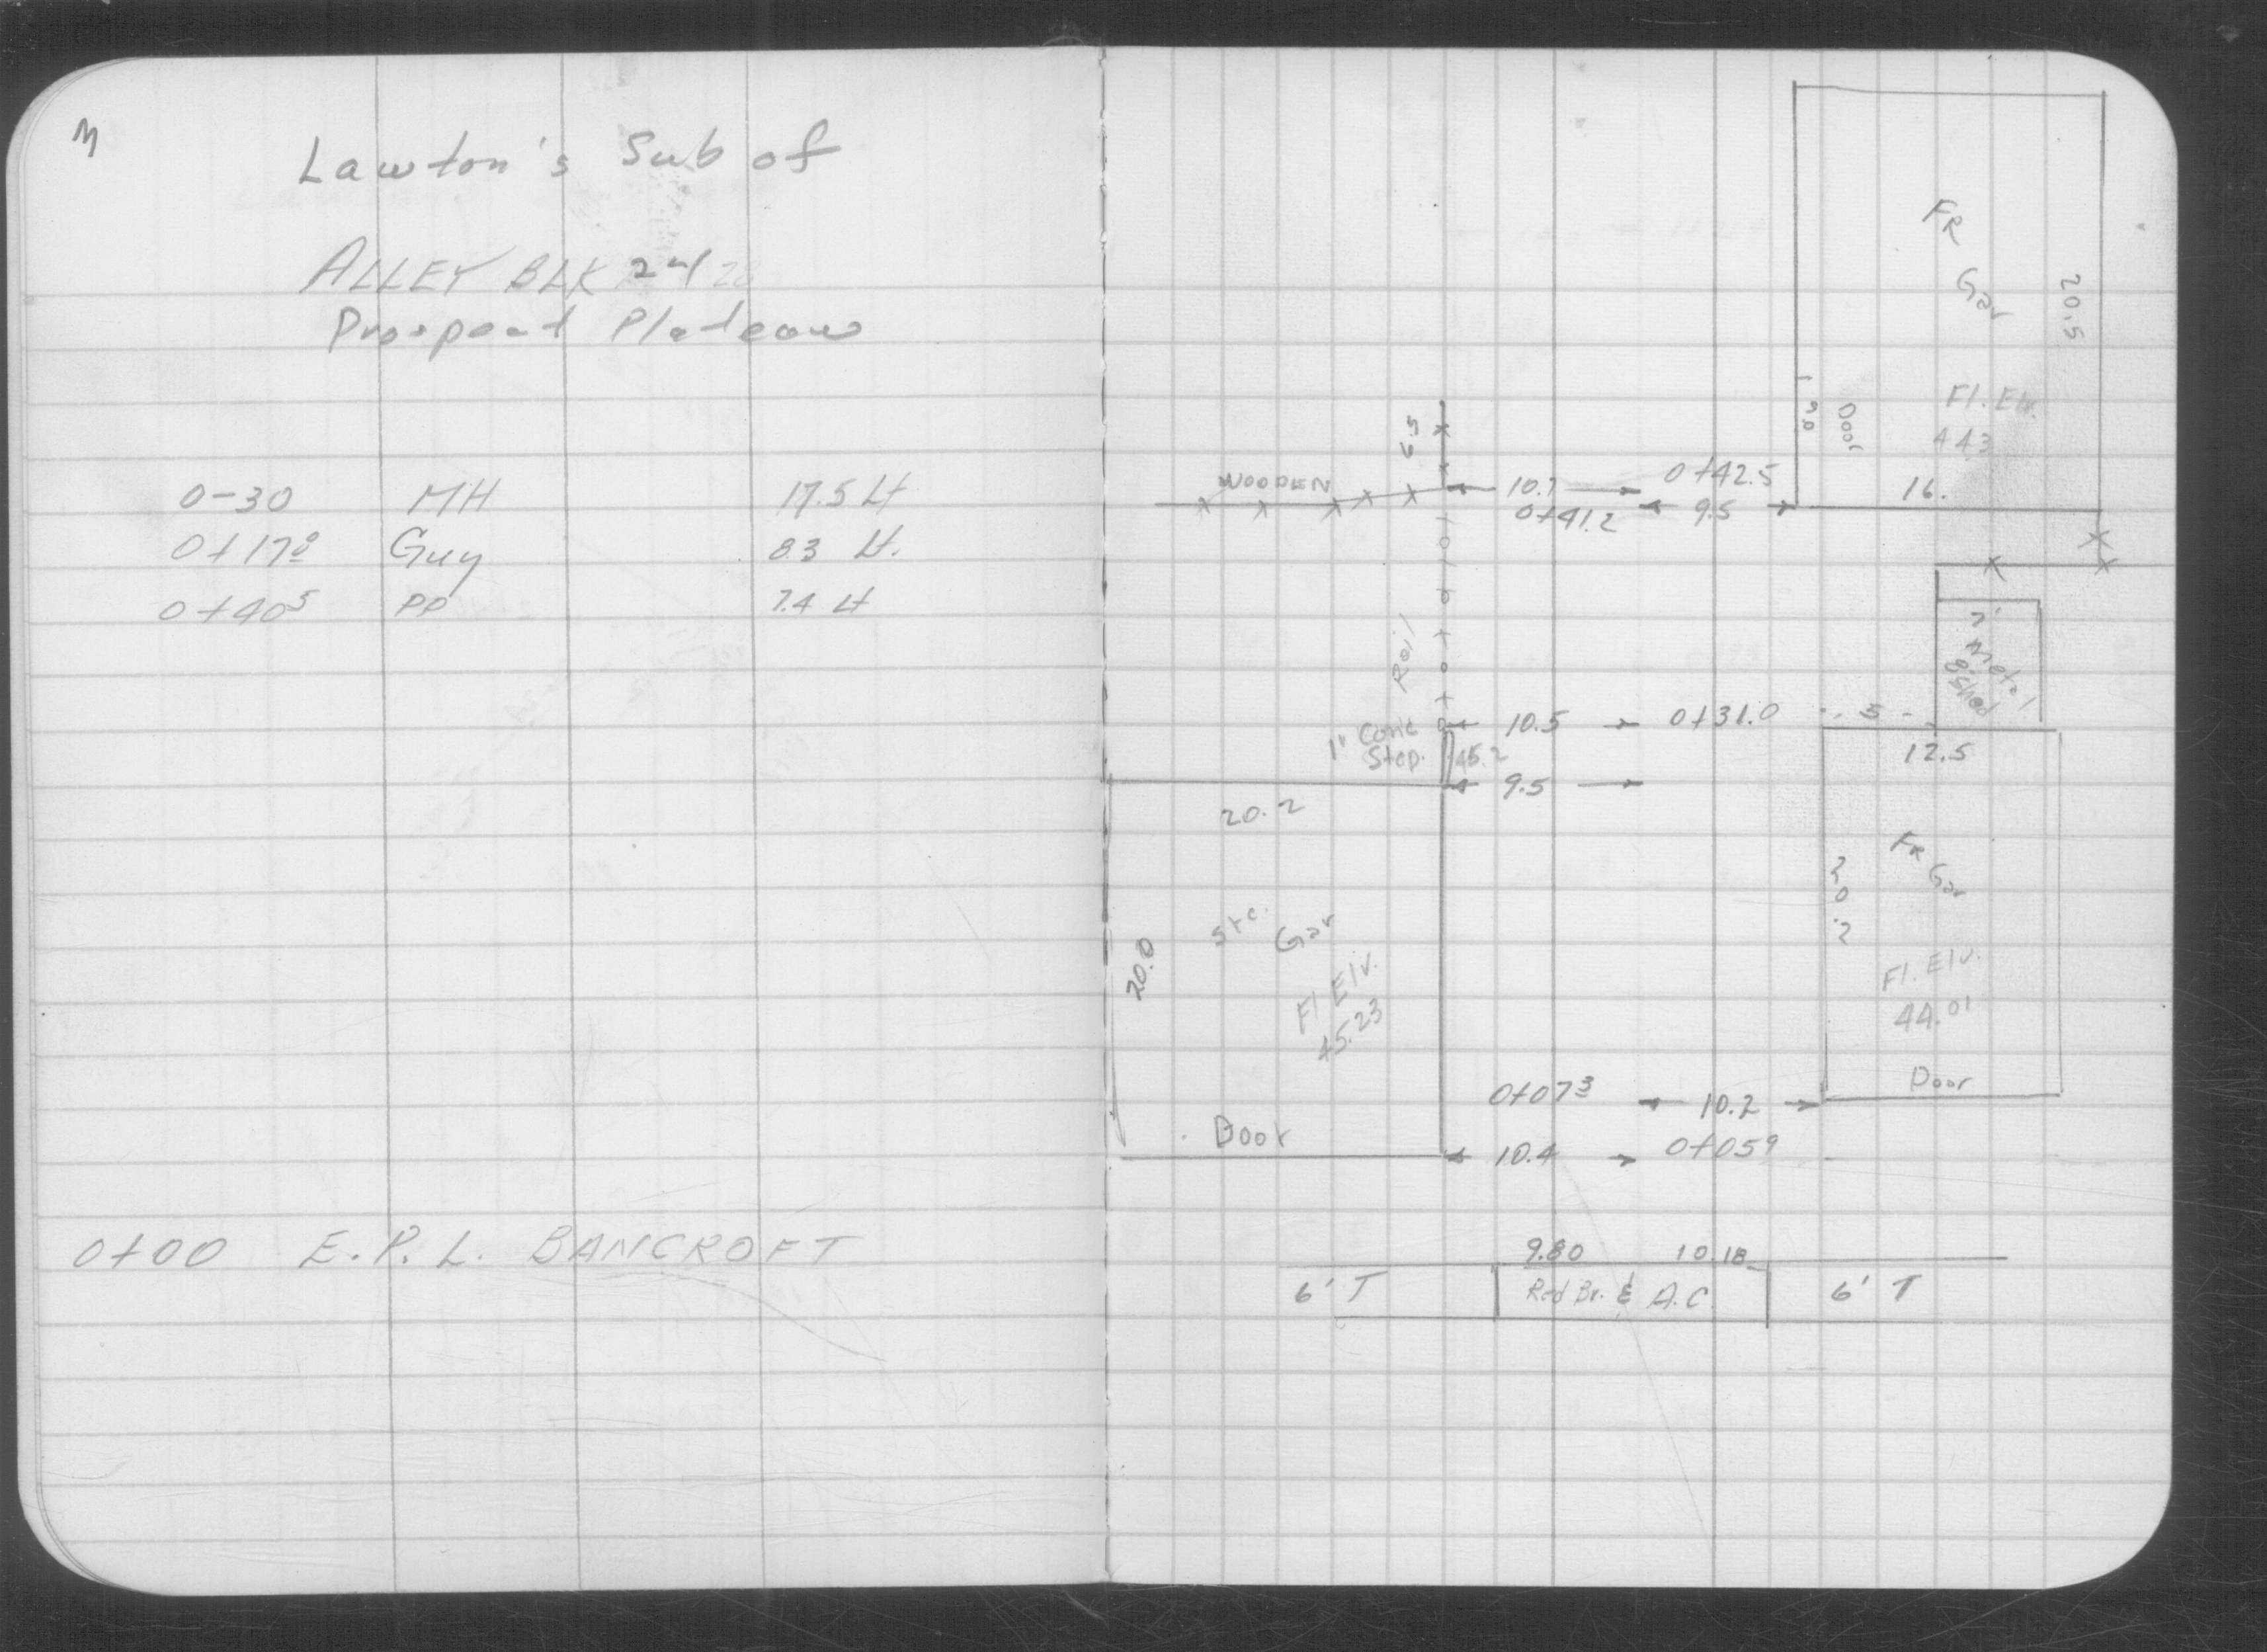 3
Lawton's Sub of
ALLEY BLK 24
Prospect Plateau
0-30 MH 17.5 Lt
0+17⁰ Guy 8.3 Lt.
0+40⁵ PP 7.4 Lt
0+00 E.P.L. BANCROFT
FR
Gar
20.5
Door
Fl. Elv.
443
16.
6.5
WOODEN
10.7 0+42.5
0+41.2 9.5
Rail
7'
Metal
Shed
1" Conc
Step.
45.2
10.5 0+31.0 5
12.5
9.5
20.2
FR
Gar
20.2
Stc. Gar
20.0
Fl Elv.
45.23
Fl. Elv.
44.01
Door
0+07³ 10.2
Door
10.4 0+05⁹
9.80 10.18
6' T Red Br. & A.C. 6' T